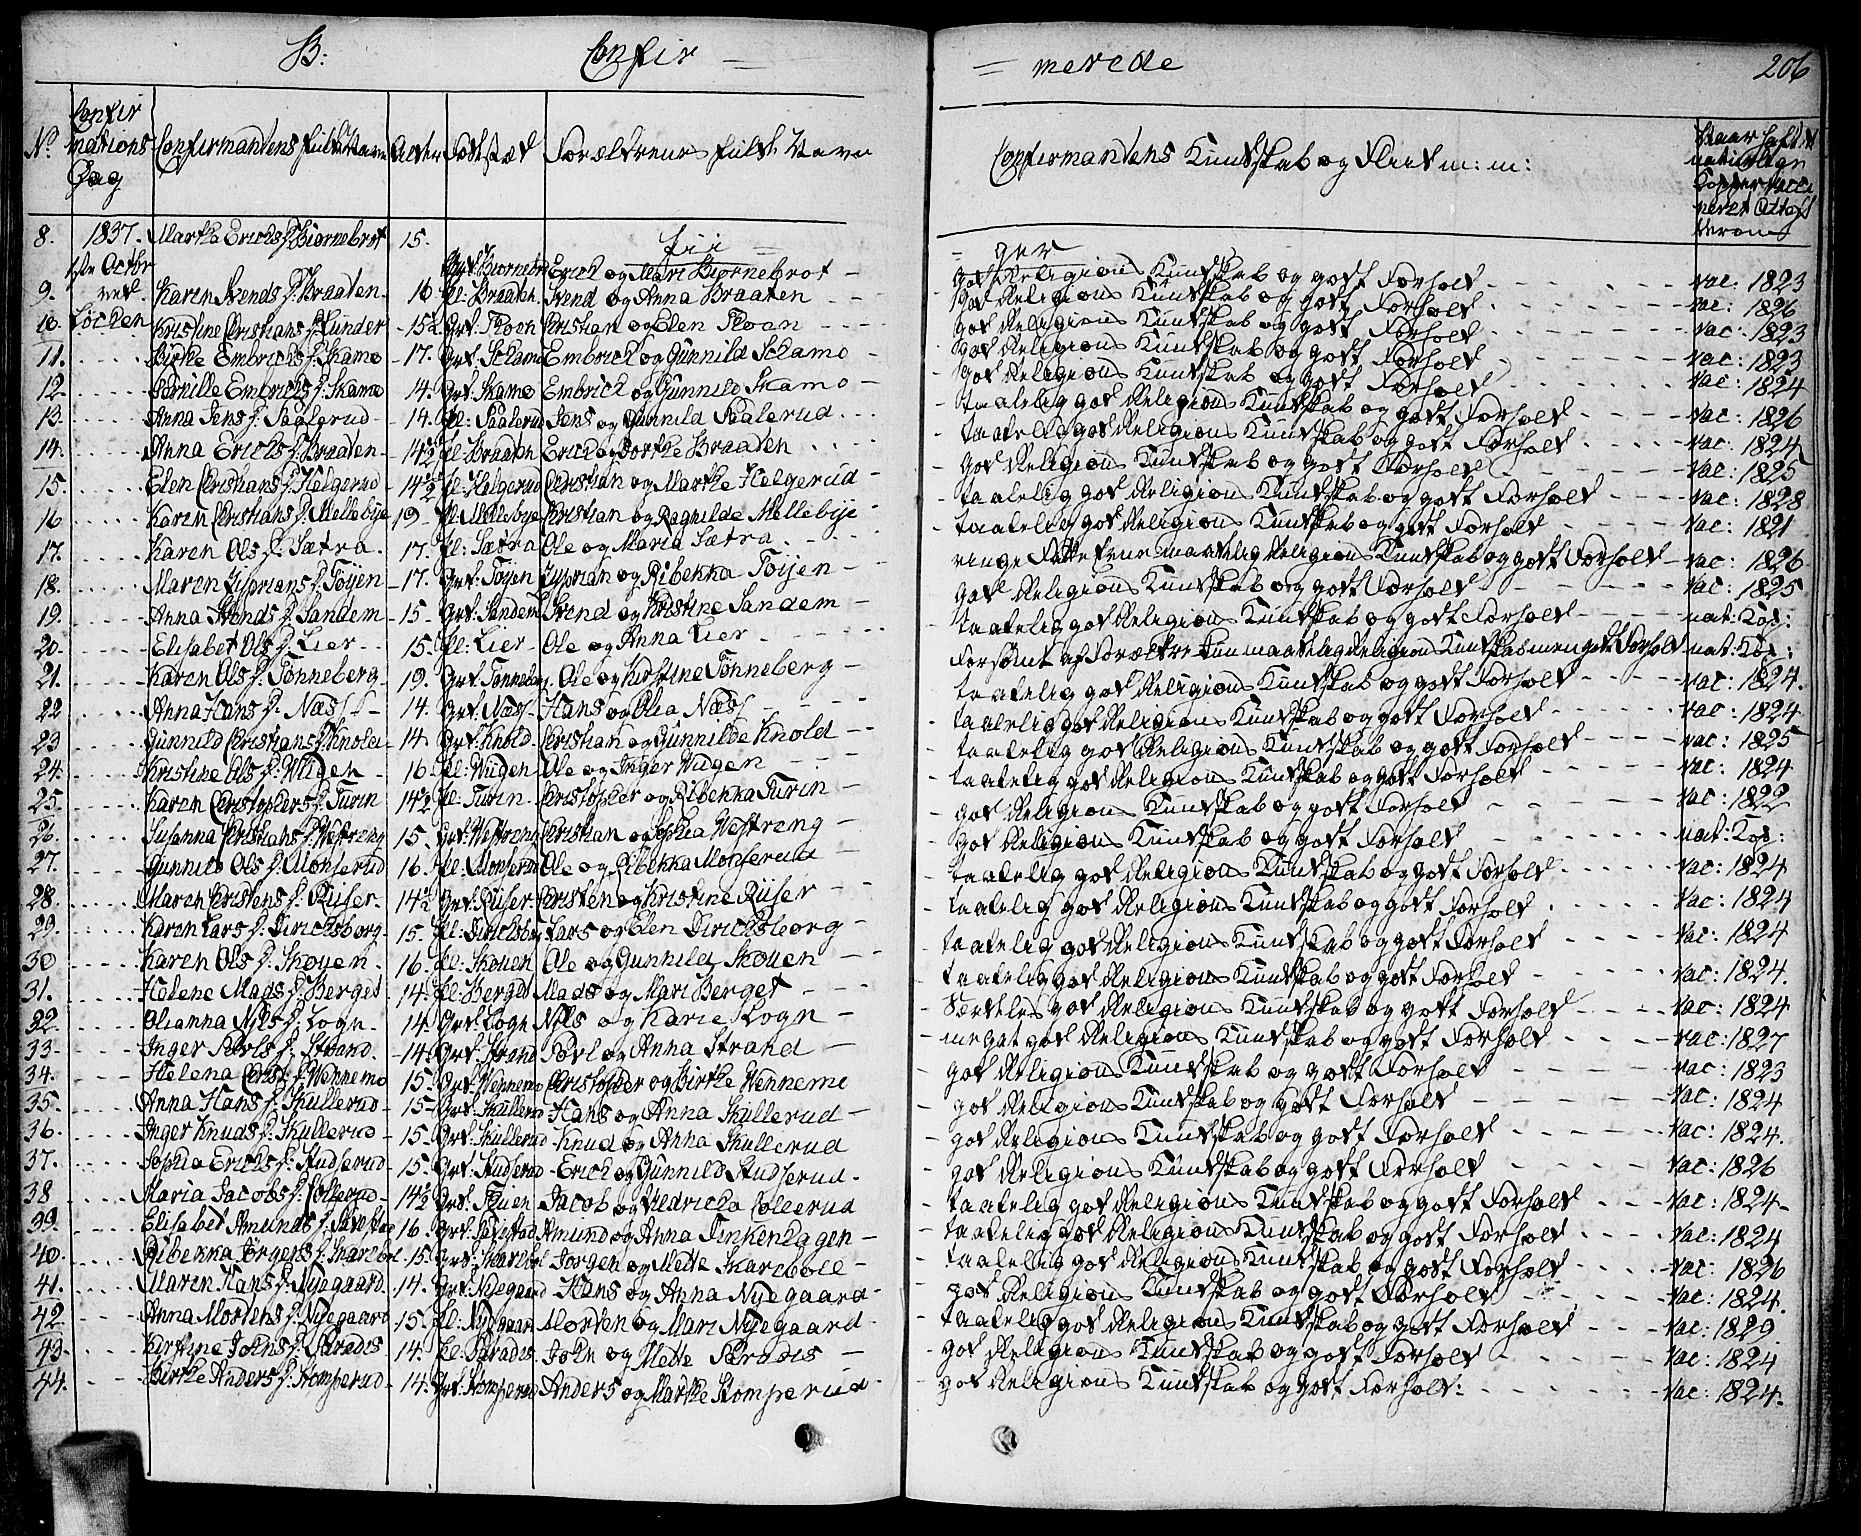 B: Confir = = merede 206
No. Confirmations Dag Confirmandens fulde Navn Alder Fødested Forældrenes fulde Navn Confirmandens Kundskab og Flid m: m: Naar haft de naturlige Kopper vacci neret Attest
Pi i = = ger
8. 1837. 1ste Octbr Marthe Erichs D: Biørnebrot 15. Grd: Biørnebro Erich og Mari Biørnebrot – god Religions Kundskab og godt Forhold vac: 1823
9. ved Karen Svends D: Braaten 16 pl: Braaten Svend og Anna Braaten god Religions Kundskab og godt Forhold vac: 1826
10. Løchen Kristine Cristians D: Lunder 15½ Grd: Skoen Cristian og Elen Skoen god Religions Kundskab og godt Forhold vac: 1823
11. Birthe Embrichs D: Skamo 17. Grd: Schamo Embrich og Gunnild Schamo god Religions Kundskab og godt Forhold vac: 1823
12. Pernille Embrichs D: Skamo 14. Grd: Skamo Embrich og Gunnild Skamo god Religions Kundskab og godt Forhold vac: 1824
13. Anna Jens D: Paalerud 14. pl: Paalerud Jens og Gunnild Paalerud taalelig god Religions Kundskab og godt Forhold vac: 1826
14. Anna Erichs D: Braaten 14½ pl: Braaten Erich og Dorthe Braaten taalelig god Religions Kundskab og godt Forhold vac: 1824
15. Elen Cristians D: Helgerud 14½ pl: Helgerud Cristian og Marthe Helgerud god Religions Kundskab og godt Forhold vac: 1825
16 Karen Cristians D: Mellebye 19 pl: Mellebye Cristian og Ragnilde Mellebye taalelig god Religions Kundskab og godt Forhold vac: 1828
17. Karen Ols D: Sætra 17. pl: Sætra Ole og Maria Sætra taalelig god Religions Kundskab og godt Forhold vac: 1821
18. Maren Zyprians D: Tøyen 17. Grd: Tøyen Zyprian og Ribekka Toijen ringe Fatte Evne maadelig Religions Kundskab og godt Forhold vac: 1826
19. Anna Svends D: Sandem 15 Grd: Sandem Svend og Kristine Sandem god Religions Kundskab og godt Forhold vac: 1825
20. Elisabet Ols D: Lier 15. pl: Lier Ole og Anna Lier taalelig god Religions Kundskab og godt Forhold nat: Kop:
21. Karen Ols D: Tønneberg 19. Grd: Tønneberg Ole og Kirstine Tønneberg Forsømt af Forældre kun maadelig Religions Kundskab men godt Forhold nat: Kop:
22 Anna Hans D: Næss 14. Grd: Næss Hans og Olia Næss taalelig god Religions Kundskab og godt Forhold vac: 1824.
23 Gunnild Cristians D: Knold 14 Grd: Knold Cristian og Gunnilde Knold taalelig god Religions Kundskab og godt Forhold vac: 1824
24. Kristine Ols D: Wiigen 16 pl: Wiigen Ole og Inger Wiigen taalelig god Religions Kundskab og godt Forhold vac: 1825
25 Karen Cristophers D: Turin 14½ pl: Turin Cristopher og Ribekka Turin taalelig god Religions Kundskab og godt Forhold vac: 1824
26. Susanna Cristians D: Westreng 15. Grd: Westreng Cristian og Sophia Westreng god Religions Kundskab og godt Forhold vac: 1822
27. Gunnild Ols D: Monserud 16. pl: Monserud Ole og Ribekka Monserud god Religions Kundskab og godt Forhold nat: Kop:
28. Maren Cristens D: Riiser 14½ Grd: Riiser Cristen og Kristine Riiser taalelig god Religions Kundskab og godt Forhold vac: 1824
29. Karen Lars D: Dirichsborg 15. pl: Dirichsborg Lars og Elen Dirichsborg taalelig god Religions Kundskab og godt Forhold vac: 1824
30 Karen Ols D: Skouen 16. pl: Skouen Ole og Gunnild Skouen taalelig god Religions Kundskab og godt Forhold vac: 1824
31. Helene Mads D: Berget 14. pl: Berget Mads og Mari Berget taalelig god Religions Kundskab og godt Forhold vac: 1824.
32. Olianna Nils D: Logn 14. Grd: Logn Nils og Karie Logn Særdeles god Religions Kundskab og godt Forhold vac: 1824
33. Inger Povls D: Strand 14. Grd: Strand Povl og Anna Strand meget god Religions Kundskab og godt Forhold vac: 1827
34. Helena Crist: D: Wennemo 15. Grd: Wennemo Cristopher og Birthe Wennemo god Religions Kundskab og godt Forhold vac: 1823
35. Anna Hans D: Skullerud 15 Grd: Skullerud Hans og Anna Skullerud god Religions Kundskab og godt Forhold vac: 1824
36. Inger Knuds D: Skullerud 15. Grd: Skullerud Knud og Anna Skullerud god Religions Kundskab og godt Forhold vac: 1824.
37. Sophia Erichs D: Studserud 15. Grd: Studserud Erich og Gunnild Studserud god Religions Kundskab og godt Forhold vac: 1826
38 Maria Jacobs D: Collerud 14½ Grd: Tuen Jacob og Fredricka Collerud taalelig god Religions Kundskab og godt Forhold vac: 1824
39. Elisabet Amunds D: 16 Grd: Amund og Anna Finkenhagen taalelig god Religions Kundskab og godt Forhold vac: 1824
40. Ribekka Jørgens D: Skarbøl 15. Grd: Skarbøl Jørgen og Mette Skarebøll taalelig god Religions Kundskab og godt Forhold vac: 1826
41. Maren Hans D: Nyegaard 14. Grd: Nyegaard Hans og Anna Nyegaard god Religions Kundskab og godt Forhold vac: 1824.
42. Anna Mortens D: Nyegaard 15. pl: Nyegaard Morten og Mari Nyegaard taalelig god Religions Kundskab og godt Forhold vac: 1829
43. Kirstine Johns D: Paradis 14. pl: Paradis John og Mette Paradis god Religions Kundskab og godt Forhold vac: 1824
44. Birthe Anders D: Stomperud 14. Grd: Stomperud Anders og Marthe Stomperud god Religions Kundskab og godt Forhold: vac: 1824.